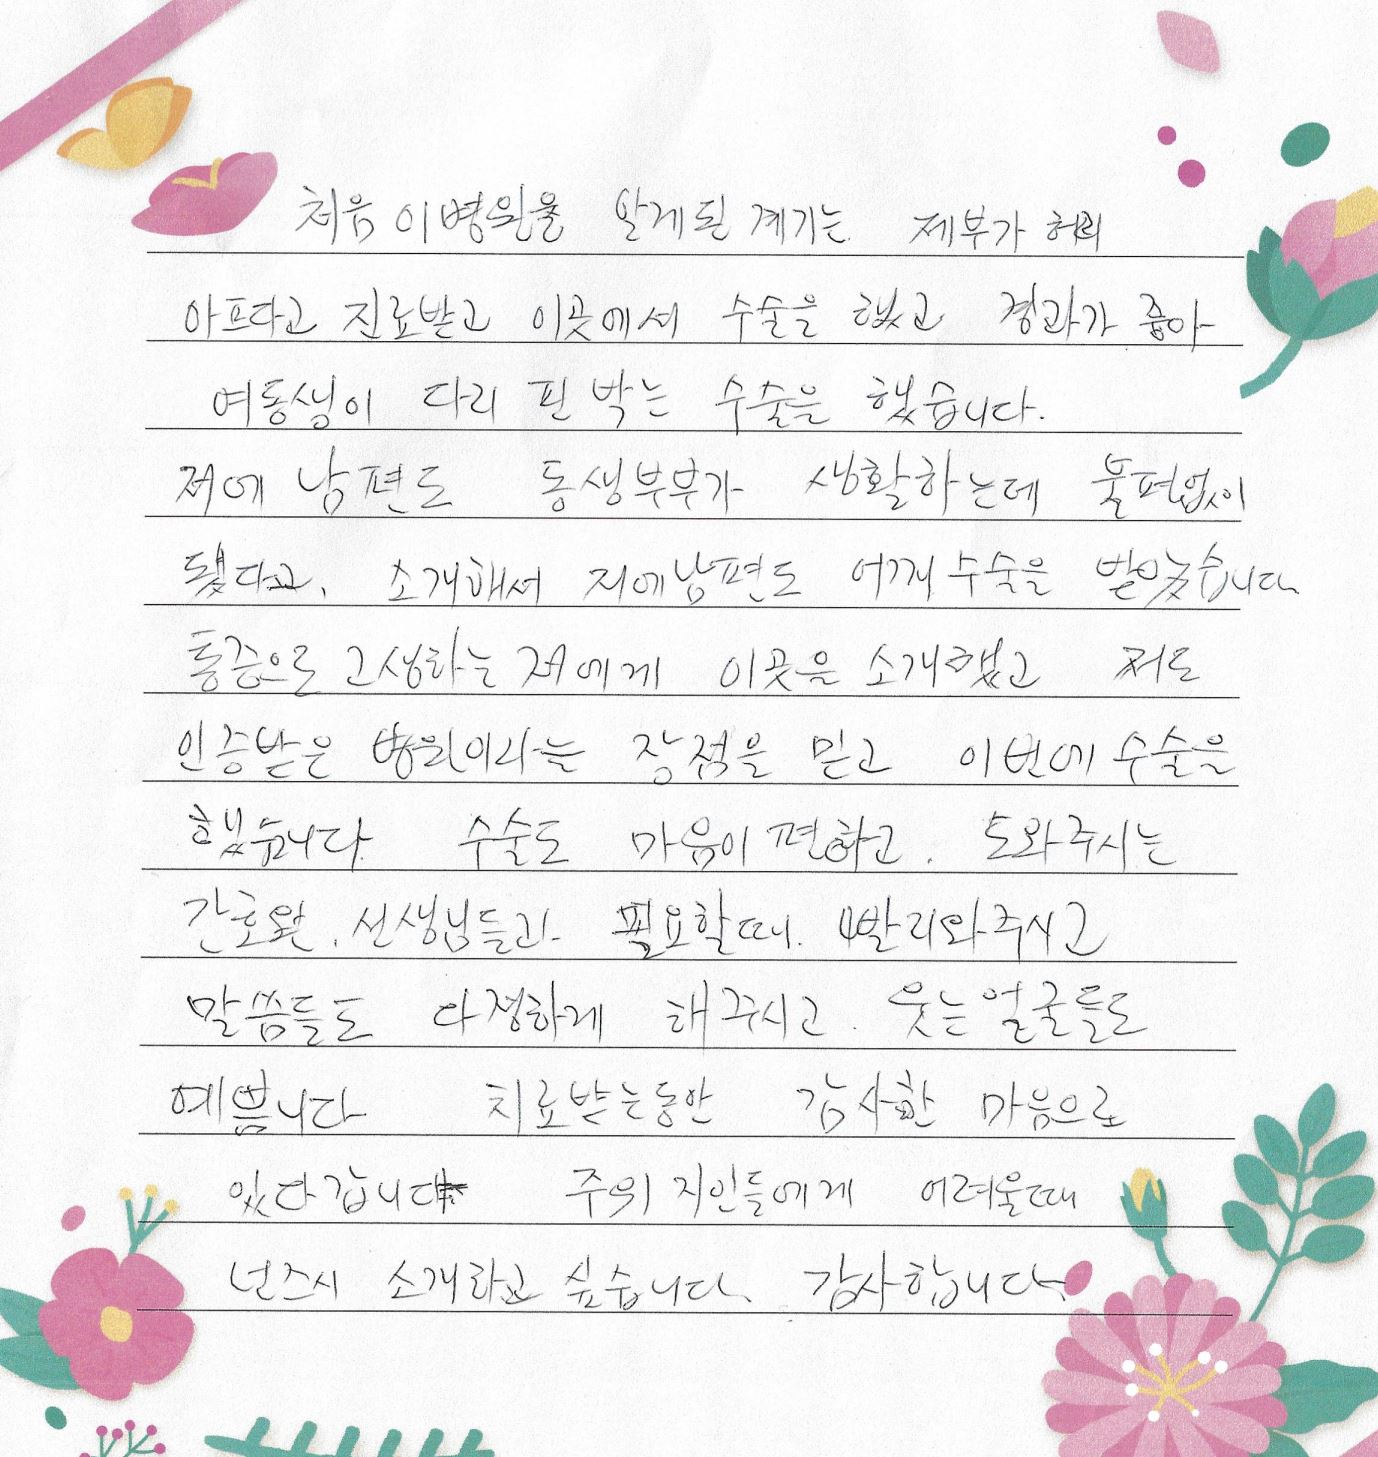 처음 이병원을 알게된 계기는 제부가 허리
아프다고 진료받고 이곳에서 수술을 했고 경과가 좋아
여동생이 다리 핀 박는 수술을 했습니다.
저에 남편도 동생부부가 생활하는데 불편없이
됐다고. 소개해서 저에남편도 어깨 수술을 받았습니다
통증으로 고생하는 저에게 이곳을 소개했고 저도
인증받은 병원이라는 장점을 믿고 이번에 수술을
했습니다. 수술도 마음이 편하고. 도와주시는
간호원. 선생님들과 필요할때. 빨리와주시고
말씀들도 다정하게 해주시고. 웃는얼굴들도
예쁩니다 치료받는동안 감사한 마음으로
있다갑니다 주위 지인들에게 어려울때
넌즈시 소개하고 싶습니다. 감사합니다